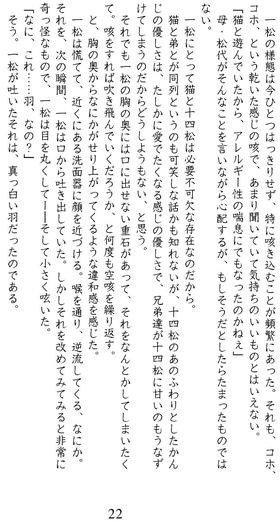 一松の様態は今ひとつはっきりせず、特に咳き込むことが頻繁にあった。それも、コホ、
コホ、という乾いた感じの咳で、あまり聞いていて気持ちのいいものとはいえない。
「猫と遊んでいたから、アレルギー性の喘息にでもなったのかねぇ」
母・松代がそんなことを言いながら心配するが、もしそうだとしたらたまったものでは
ない。
一松にとって猫と十四松は必要不可欠な存在なのだから。
猫と弟とが同列というのも可笑しな話かも知れないが、十四松のあのふわりとしたかん
じの優しさは、たしかに愛でたくなる感じの優しさで、兄弟達が十四松に甘いのもうなず
けてしまうのだからどうしようもない、と思う。
それでも一松の胸の奥には口に出せない重石があって、それをなんとかしてしまいたく
て。咳をすれば吹き飛んでいくだろうか、と何度も空咳を繰り返す。
と、胸の奥からなにかがせり上がってくるような違和感を感じた。
一松は慌てて、近くにある洗面器に顔を近づける。喉を通り、逆流してくる、なにか。
それを、次の瞬間、一松は口から吐き出していた。しかしそれを改めてみてみると非常に
奇っ怪なもので、一松は目を丸くして――そして小さく呟いた。
「なに、これ……羽、なの？」
そう。一松が吐いたそれは、真っ白い羽だったのである。
22